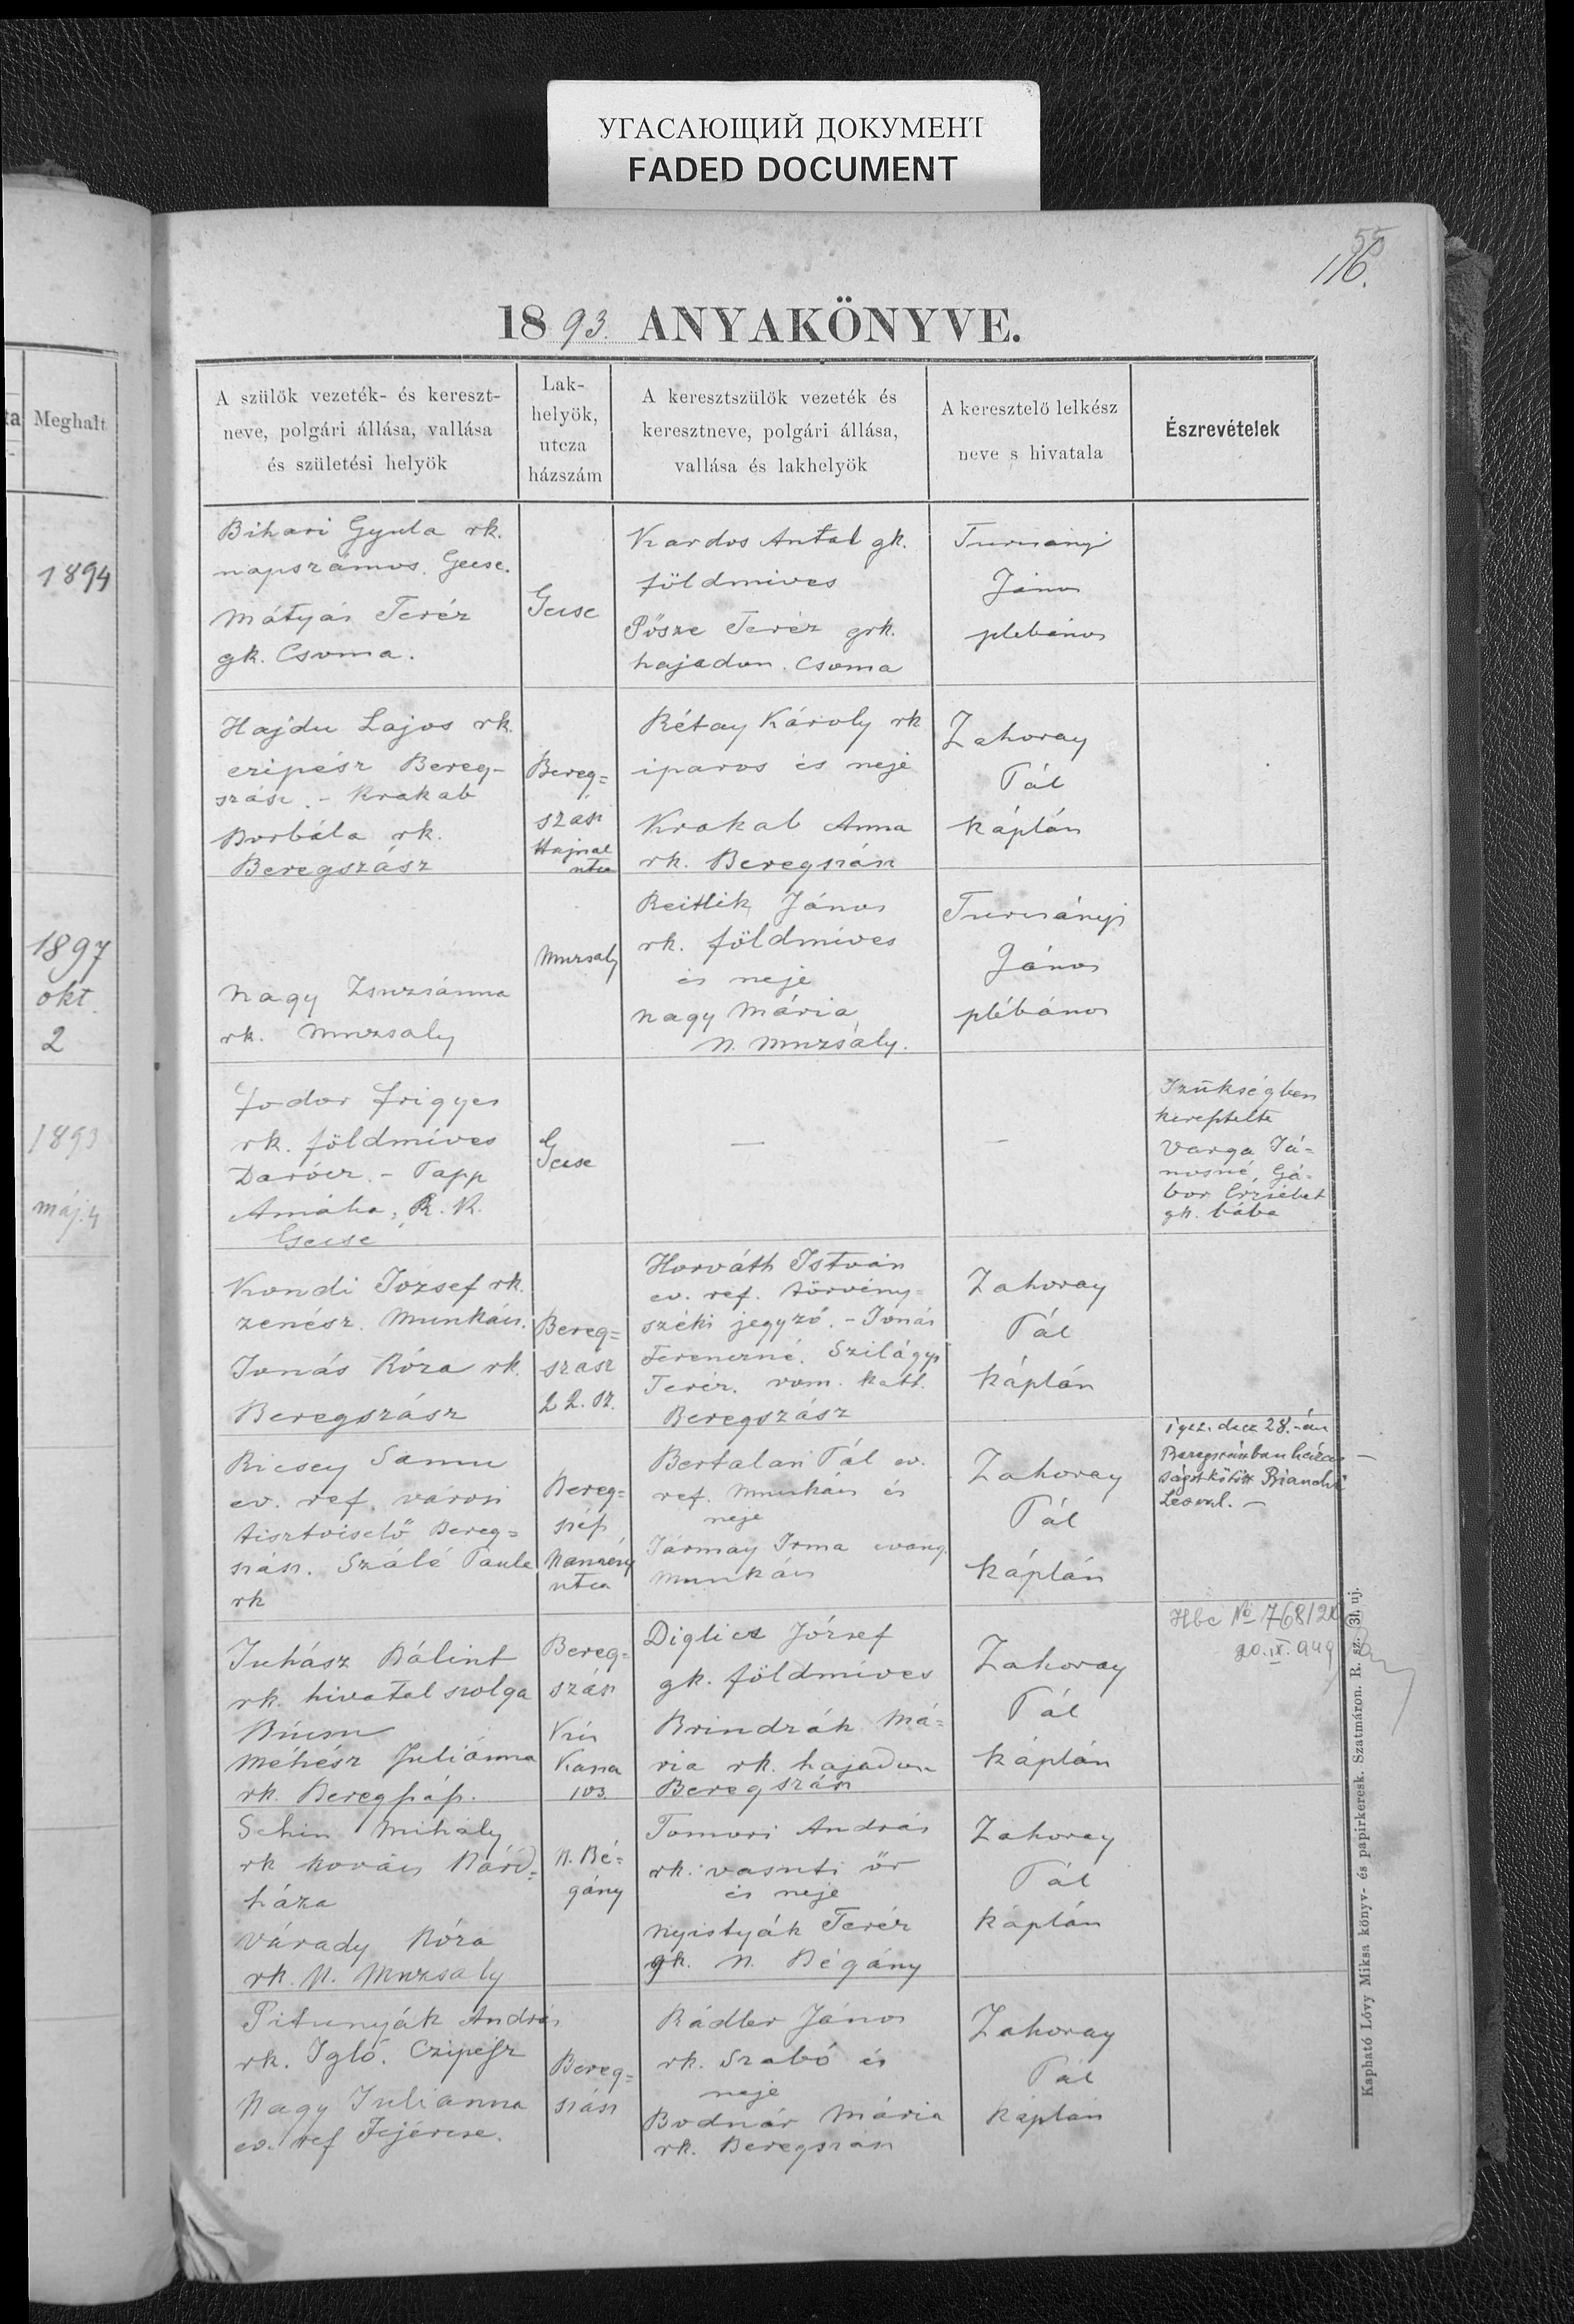 УГАСАЮЩИЙ ДОКУМЕНТ
FADED DOCUMENT
55
116.
1893. ANYAKÖNYVE.
ta
Meghalt
1894
1897
okt.
2
1893
máj. 4
A szülök vezeték- és kereszt-
neve, polgári állása, vallása
és születési helyök
Lak-
helyök,
utcza
házszám
A keresztszülök vezeték és
keresztneve, polgári állása,
vallása és lakhelyök
A keresztelő lelkész
neve s hivatala
Észrevételek
Bihari Gyula rk.
napszámos. Gecse.
Mátyás Teréz
gk. Csoma.
Gecse
Kardos Antal gk.
földmives
Pősze Teréz grk.
hajadon. Csoma
Turcsányi
János
plebános
Hajdu Lajos rk.
czipész Bereg-
szász. - Krakab
Borbála rk.
Beregszász
Bereg=
szász
Hajnal
utca
Rétay Károly rk
iparos és neje
Krakab Anna
rk. Beregszász
Zahoray
Pál
káplán
Nagy Zsuzsánna
rk. Muzsaly
Muzsaly
Reitlik János
rk. földmíves
és neje
Nagy Mária
N. Muzsaly.
Turcsányi
János
plébános
Fodor Frigyes
rk. földmíves
Darócz. - Papp
Amália, R. K.
Gecse
Gecse
—
—
Szükségben
keresztelte
Varga Já-
nosné, Gá-
bor Erzsébet
gk. bába
Kondi József rk.
zenész. Munkács.
Jónás Róza rk.
Beregszász
Bereg=
szasz
22. sz.
Horváth István
ev. ref. törvény=
széki jegyző. - Jónás
Ferenczné. Szilágyi
Teréz. rom. kath.
Beregszász
Zahoray
Pál
káplán
Ricsey Samu
ev. ref. városi
tisztviselő Bereg=
szász. Szálé Paula
rk
Bereg=
szász
utca
Bertalan Pál ev.
ref. Munkács és
neje
Jármay Irma evang.
Munkács
Zahoray
Pál
káplán
dec 28.-án
Beregszászban háza-
ságot kötött Bianchi
Juhász Bálint
rk. hivatal szolga
Búcsu
Méhész Juliánna
rk. Beregszász.
Bereg=
szász
Kis
Kassa
103.
Diglicz József
gk. földmíves
Brindzák Má=
ria rk. hajadon
Beregszász
Zahoray
Pál
káplán
20. IX. 949
Schin Mihály
rk kovács Bárd=
háza
Várady Róza
rk. N. Muzsaly
N. Bé=
gány
Tomori András
rk. vasuti őr
és neje
Nyistyák Teréz
gk. N. Bégány
Zahoray
Pál
káplán
Pitunyák András
rk. Igló. Czipész
Nagy Julianna
ev. ref Fejércse.
Bereg=
szász
Rádler János
rk. Szabó és
neje
Bodnár Mária
rk. Beregszász
Zahoray
Pál
káplán
Kapható Lóvy Miksa könyv- és papirkeresk. Szatmáron. R. sz. 31. uj.